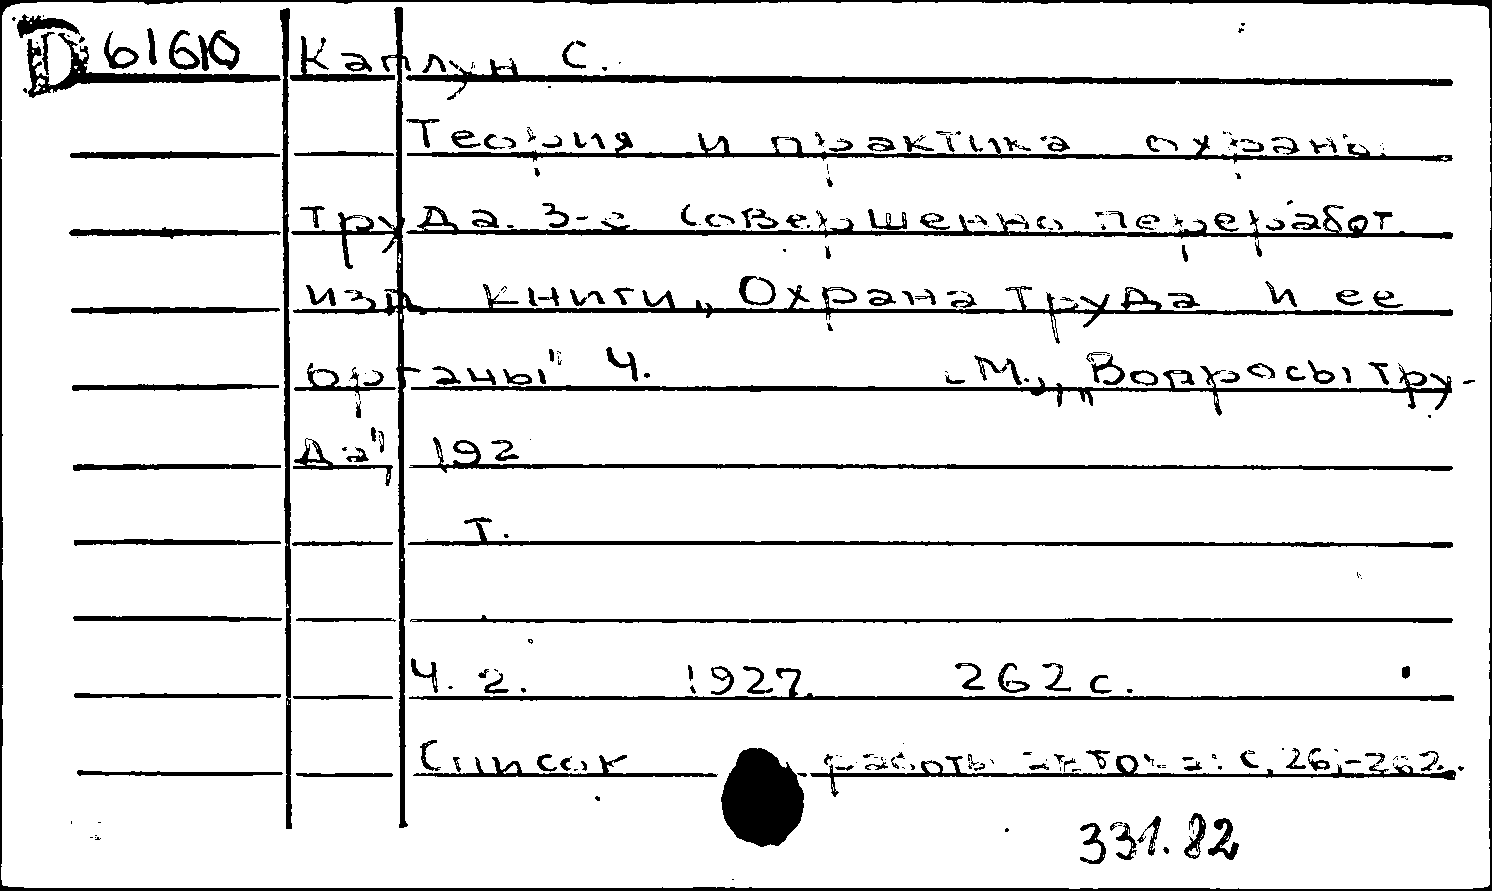 D 61610 Каплун С.
Теория и практика охраны
труда. 3-е совершенно переработ.
изд. книги „Охрана труда и ее
органы" Ч. - М., „Вопросы тру-
да", 192
Т.
Ч. 2. 1927. 262 с.
Список работы автора: с. 261-262.
331.82